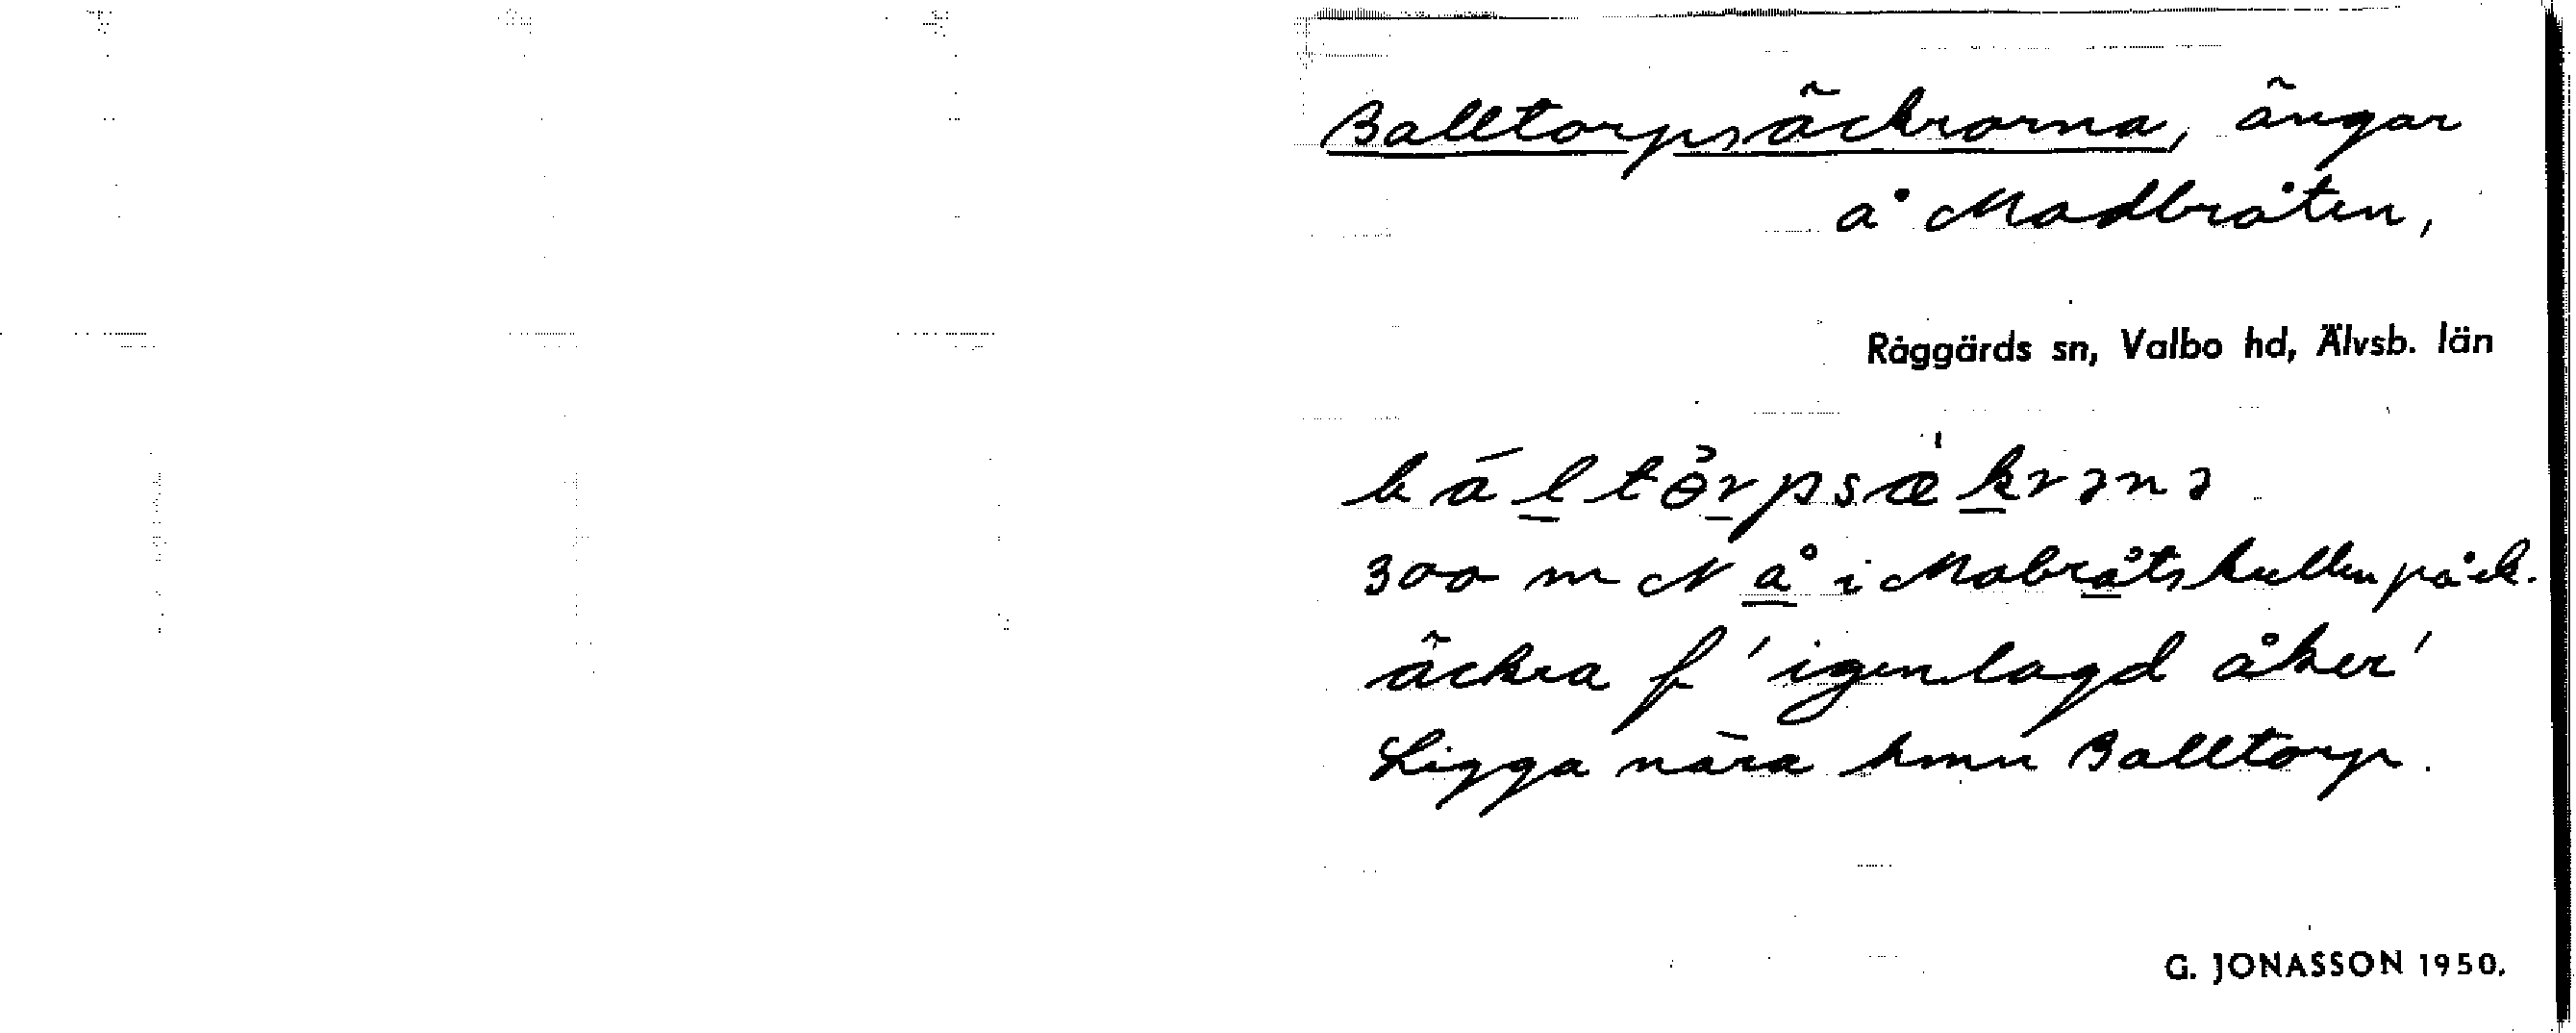 Balltorpsäckrorna, ängar
å Madbråten,
Råggärds sn, Valbo hd, Älvsb. län
báltɵ̀rpsækrənə
300 m N å i Mabråtskullen på ek.
äckra f 'igenlagd åker'
Ligga nära hmn Balltorp.
G. JONASSON 1950.